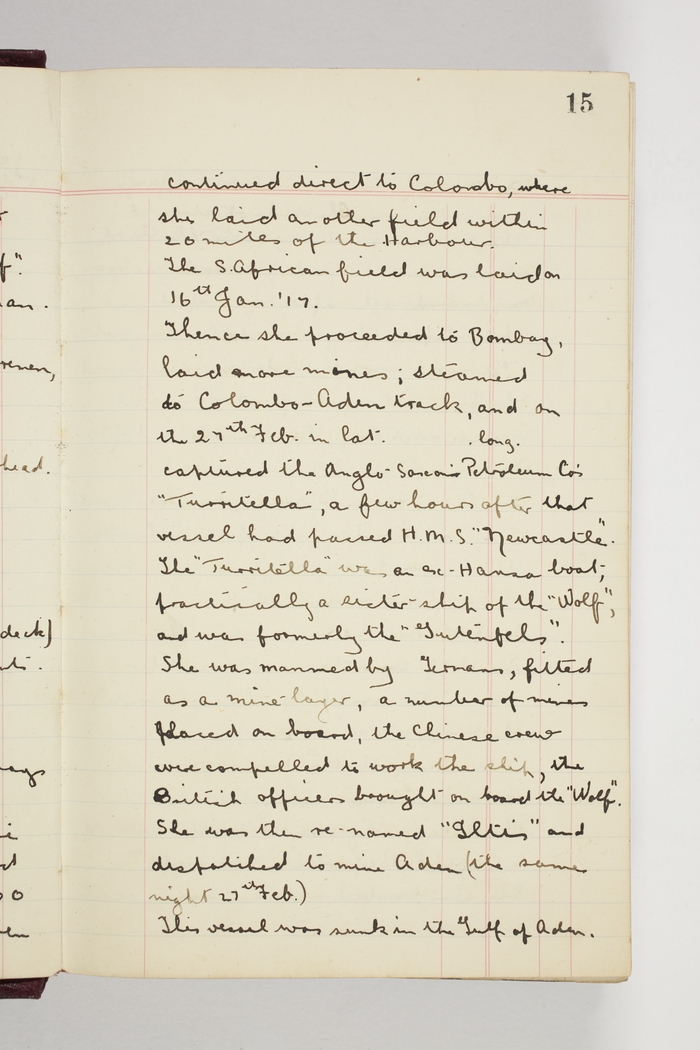 15
continued direct to Colombo, where
she laid another field within
20 miles of the Harbour.
The S.African field was laid on
16th Jan. '17.
Thence she proceeded to Bombay,
laid more mines; steamed
to Colombo-Aden track, and on
the 27th Feb. in lat. . long.
captured the Anglo-Saxon Petroleum Co's
"Turritella", a few hours after that
vessel had passed H.M.S. "Newcastle".
The "Turritella" was an ex-Hansa boat,
practically a sister-ship of the "Wolf",
and was formerly the "Gutenfels".
She was manned by Germans, fitted
as a mine-layer, a number of mines
placed on board, the Chinese crew
were compelled to work the ship, the
British officers brought on board the "Wolf".
She was then re-named "Iltis" and
dispatched to mine Aden (the same
night 27th Feb.)
This vessel was sunk in the Gulf of Aden.
f".
an.
head.
deck)